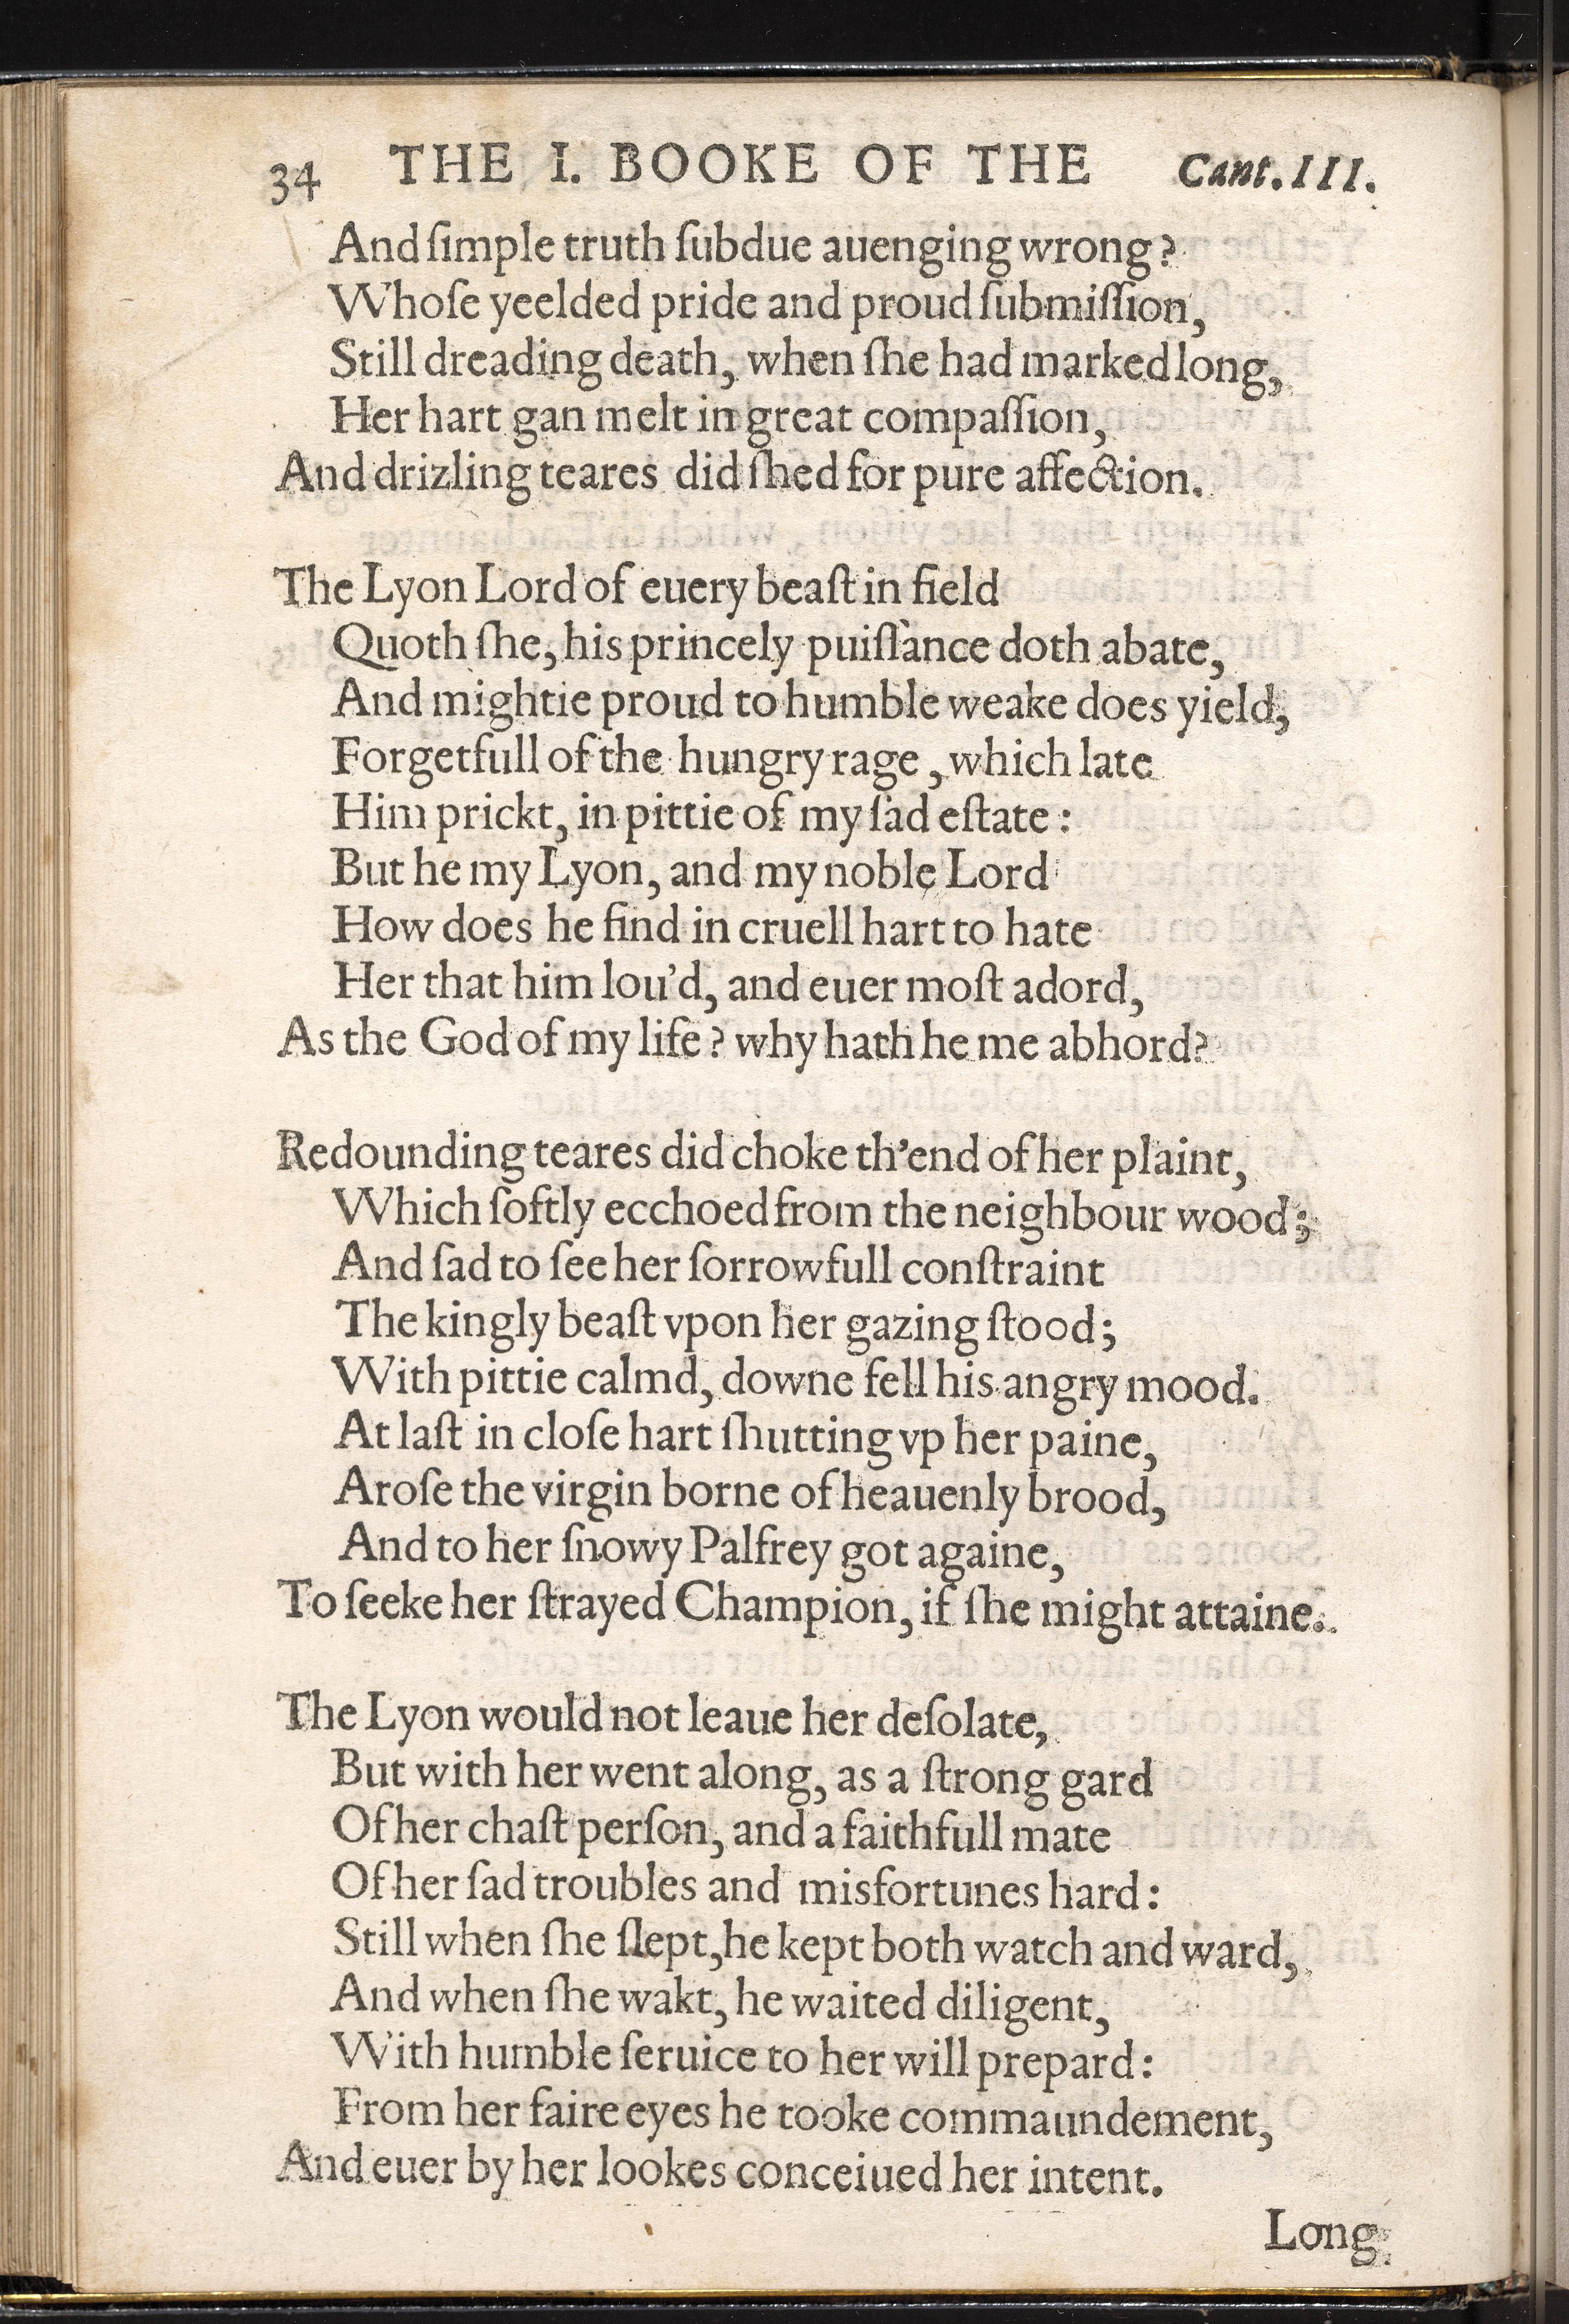 34 THE I. BOOKE OF THE Cant. III.
And ſimple truth ſubdue auenging wrong?
Whoſe yeelded pride and proud ſubmiſſion,
Still dreading death, when ſhe had marked long,
Her hart gan melt in great compaſſion,
And drizling teares did ſhed for pure affection.
The Lyon Lord of euery beaſt in field
Quoth ſhe, his princely puiſſance doth abate,
And mightie proud to humble weake does yield,
Forgetfull of the hungry rage, which late
Him prickt, in pittie of my ſad eſtate:
But he my Lyon, and my noble Lord
How does he find in cruell hart to hate
Her that him lou'd, and euer moſt adord,
As the God of my life? why hath he me abhord?
Redounding teares did choke th'end of her plaint,
Which ſoftly ecchoed from the neighbour wood;
And ſad to ſee her ſorrowfull conſtraint
The kingly beaſt vpon her gazing ſtood;
With pittie calmd, downe fell his angry mood.
At laſt in cloſe hart ſhutting vp her paine,
Aroſe the virgin borne of heauenly brood,
And to her ſnowy Palfrey got againe,
To ſeeke her ſtrayed Champion, if ſhe might attaine.
The Lyon would not leaue her deſolate,
But with her went along, as a ſtrong gard
Of her chaſt perſon, and a faithfull mate
Of her ſad troubles and misfortunes hard:
Still when ſhe ſlept, he kept both watch and ward,
And when ſhe wakt, he waited diligent,
With humble ſeruice to her will prepard:
From her faire eyes he tooke commaundement,
And euer by her lookes conceiued her intent.
Long